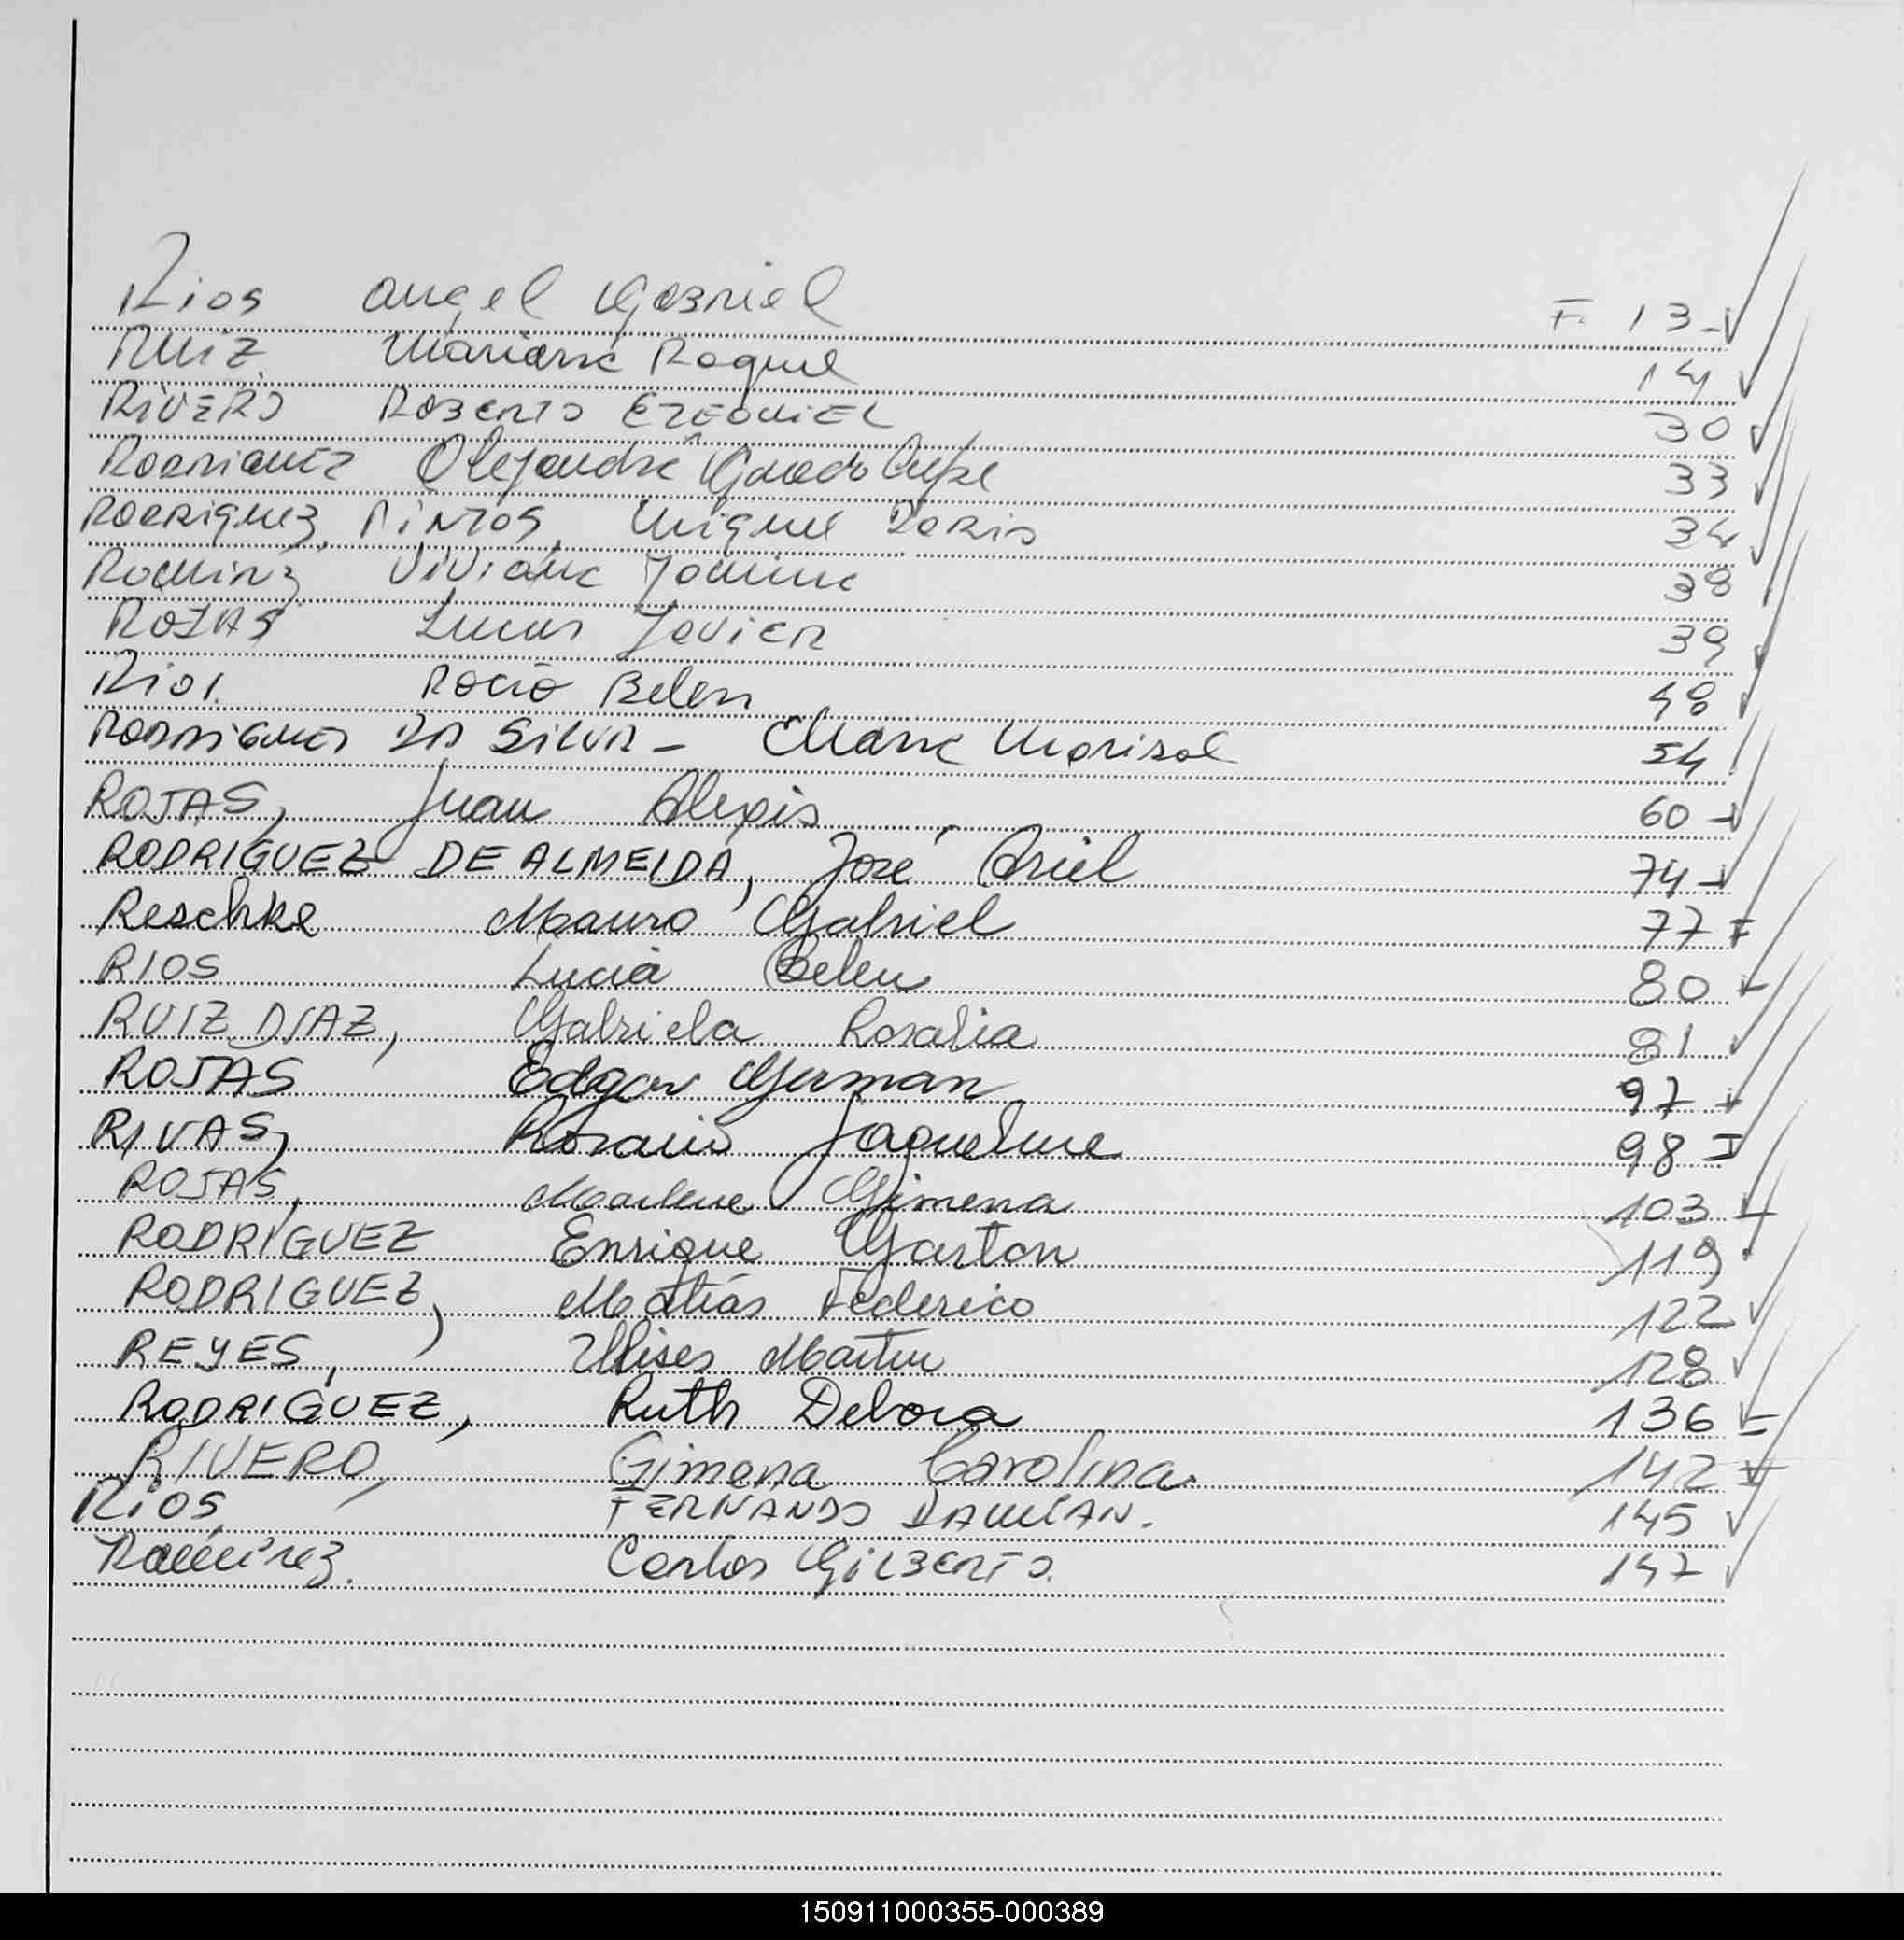 Rios Angel Gabriel F. 13
RUIZ. Mariana Raquel 14
RIVERO ROBERTO EZEQUIEL 30
RODRIGUEZ Alejandra Guadalupe 33
RODRIGUEZ, PINTOS, Miguel DARIO 34
Viviana 38
ROJAS Lucas Javier 39
Rios. ROCIO Belen 48
RODRIGUES DA SILVA - Marisol 54
ROJAS, Juan Alexis 60
RODRIGUEZ DE ALMEIDA, José Ariel 74
Reschke Mauro Gabriel 77
RIOS Lucia Belen 80
RUIZ DIAZ, Gabriela Rosalia 81
ROJAS Edgar German 97
RIVAS, Rosario Jaqueline 98
ROJAS, Marlene Gimena 103
RODRIGUEZ Enrique Gaston 119
RODRIGUEZ, Matías Federico 122
REYES, Ulises Martin 128
RODRIGUEZ, Ruth Debora 136
RIVERO, Gimena Carolina 142
Rios, FERNANDO DAMIAN. 145
Ramirez. Carlos GILBERTO. 147
150911000355-000389